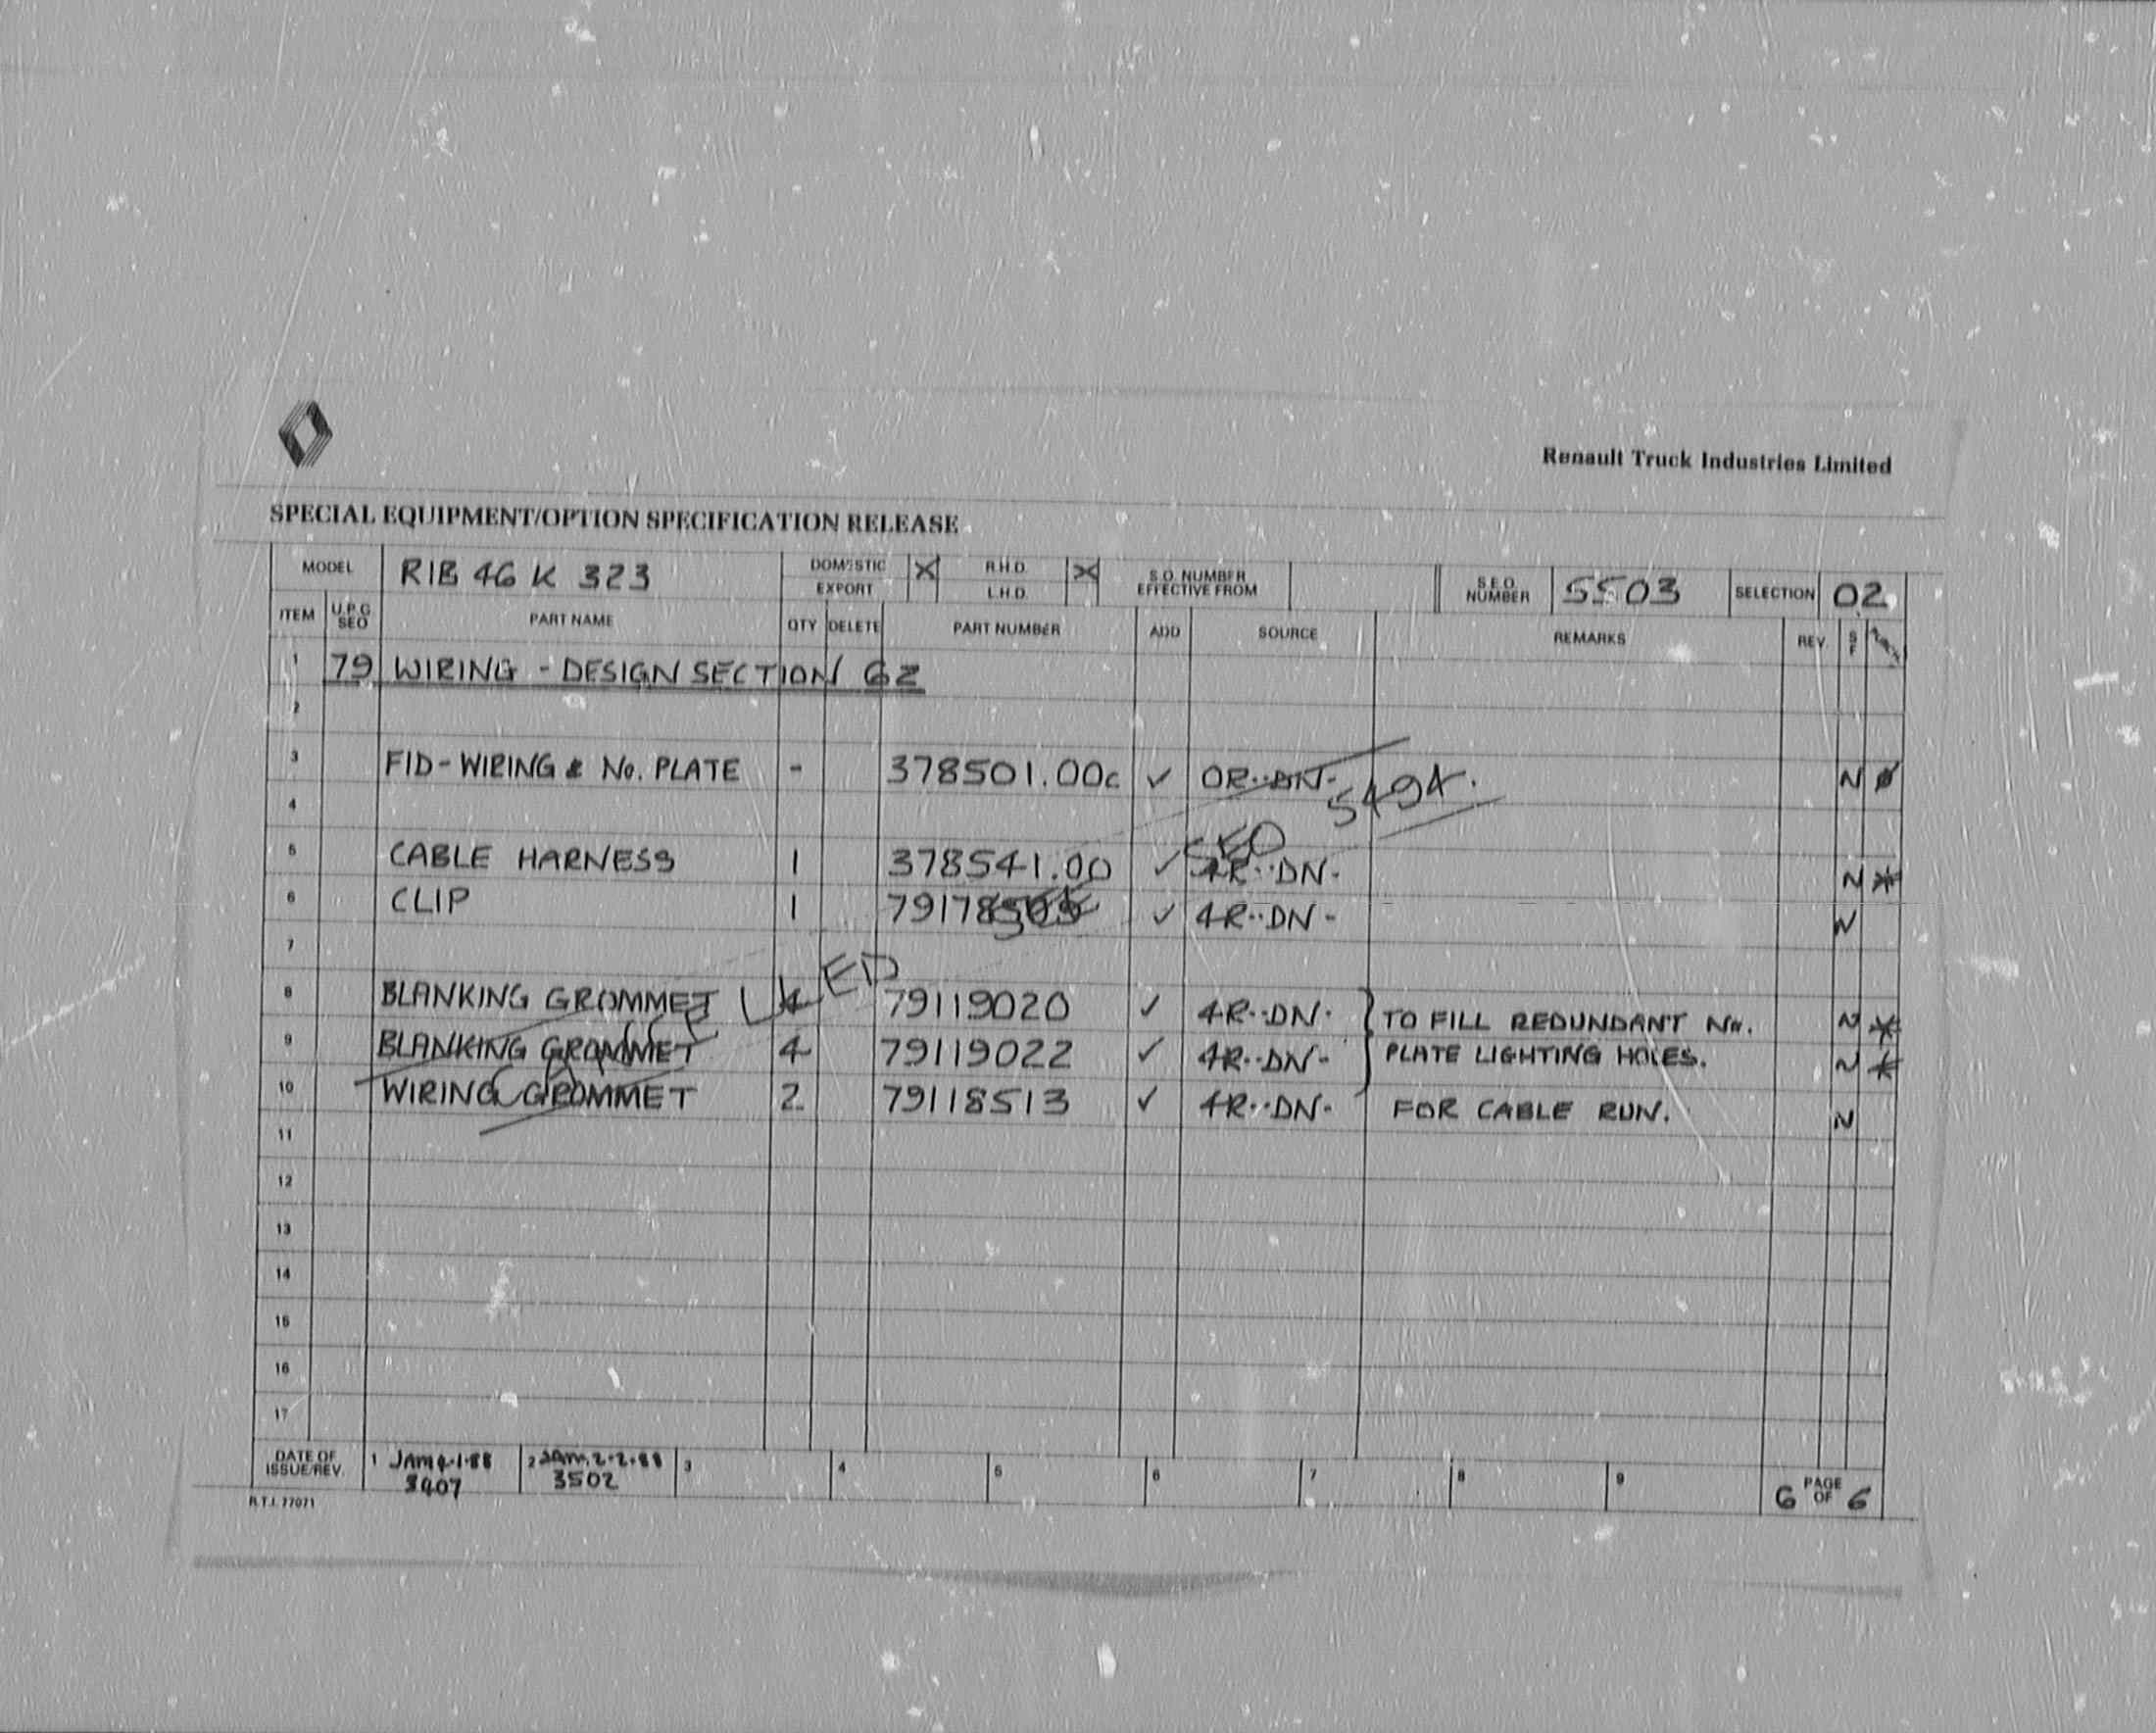 Renault Truck Industries Limited
SPECIAL EQUIPMENT/OPTION SPECIFICATION RELEASE
MODEL RIB 46 K 323 DOMESTIC EXPORT X R.H.D. L.H.D. X S.O. NUMBER EFFECTIVE FROM S.E.O. NUMBER 5503 SELECTION 02
ITEM U.P.G SEO PART NAME QTY DELETE PART NUMBER ADD SOURCE REMARKS REV S F
1 79 WIRING - DESIGN SECTION 6Z
2
3 FID - WIRING & No. PLATE - 378501.00c ✓ OR··DN- N
4
5 CABLE HARNESS 1 378541.00 ✓ 4R··DN- N *
6 CLIP 1 ✓ 4R··DN- N
7
8 BLANKING GROMMET 4 79119020 ✓ 4R··DN- TO FILL REDUNDANT No. N *
9 BLANKING GROMMET 4 79119022 ✓ 4R··DN- PLATE LIGHTING HOLES. N *
10 WIRING GROMMET 2 79118513 ✓ 4R··DN- FOR CABLE RUN. N
CANCELLED SEE SEO 5494.
11
12
13
14
15
16
17
DATE OF ISSUE/REV. 1 JAM 4·1·88 2 JAM 2·2·88 3 4 5 6 7 8 9 6 PAGE OF 6
3502
R.T.I. 77071